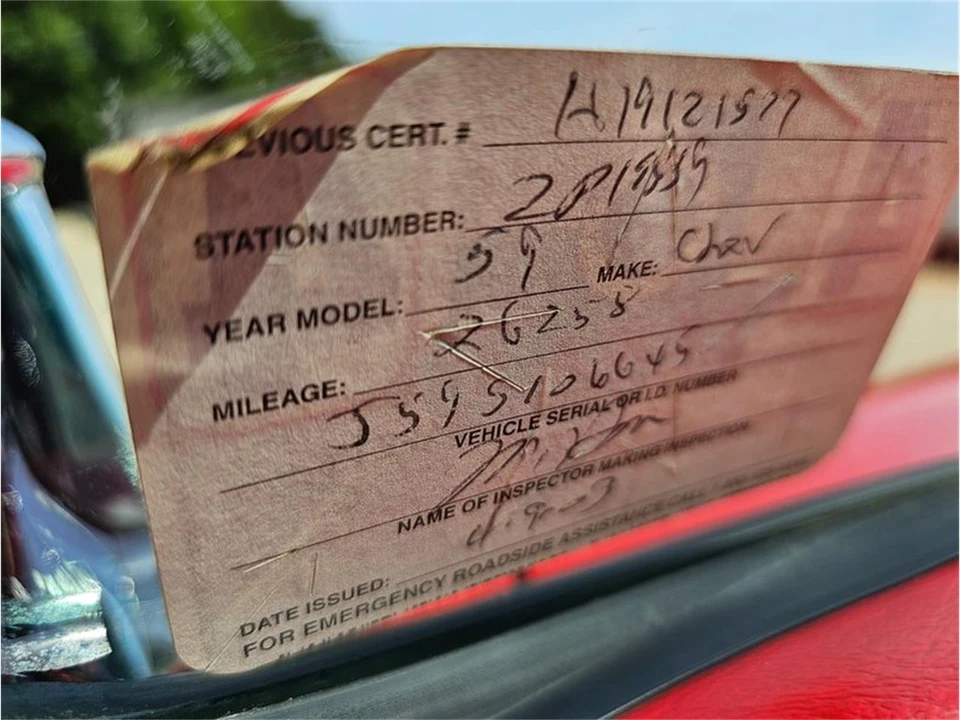 EVIOUS CERT. # H19121577
STATION NUMBER: 2P19539
YEAR MODEL: 59 MAKE: Chev
MILEAGE: 26258
J59S106645
VEHICLE SERIAL OR I.D. NUMBER
NAME OF INSPECTOR MAKING INSPECTION
DATE ISSUED: 4-9-3
FOR EMERGENCY ROADSIDE ASSISTANCE CALL